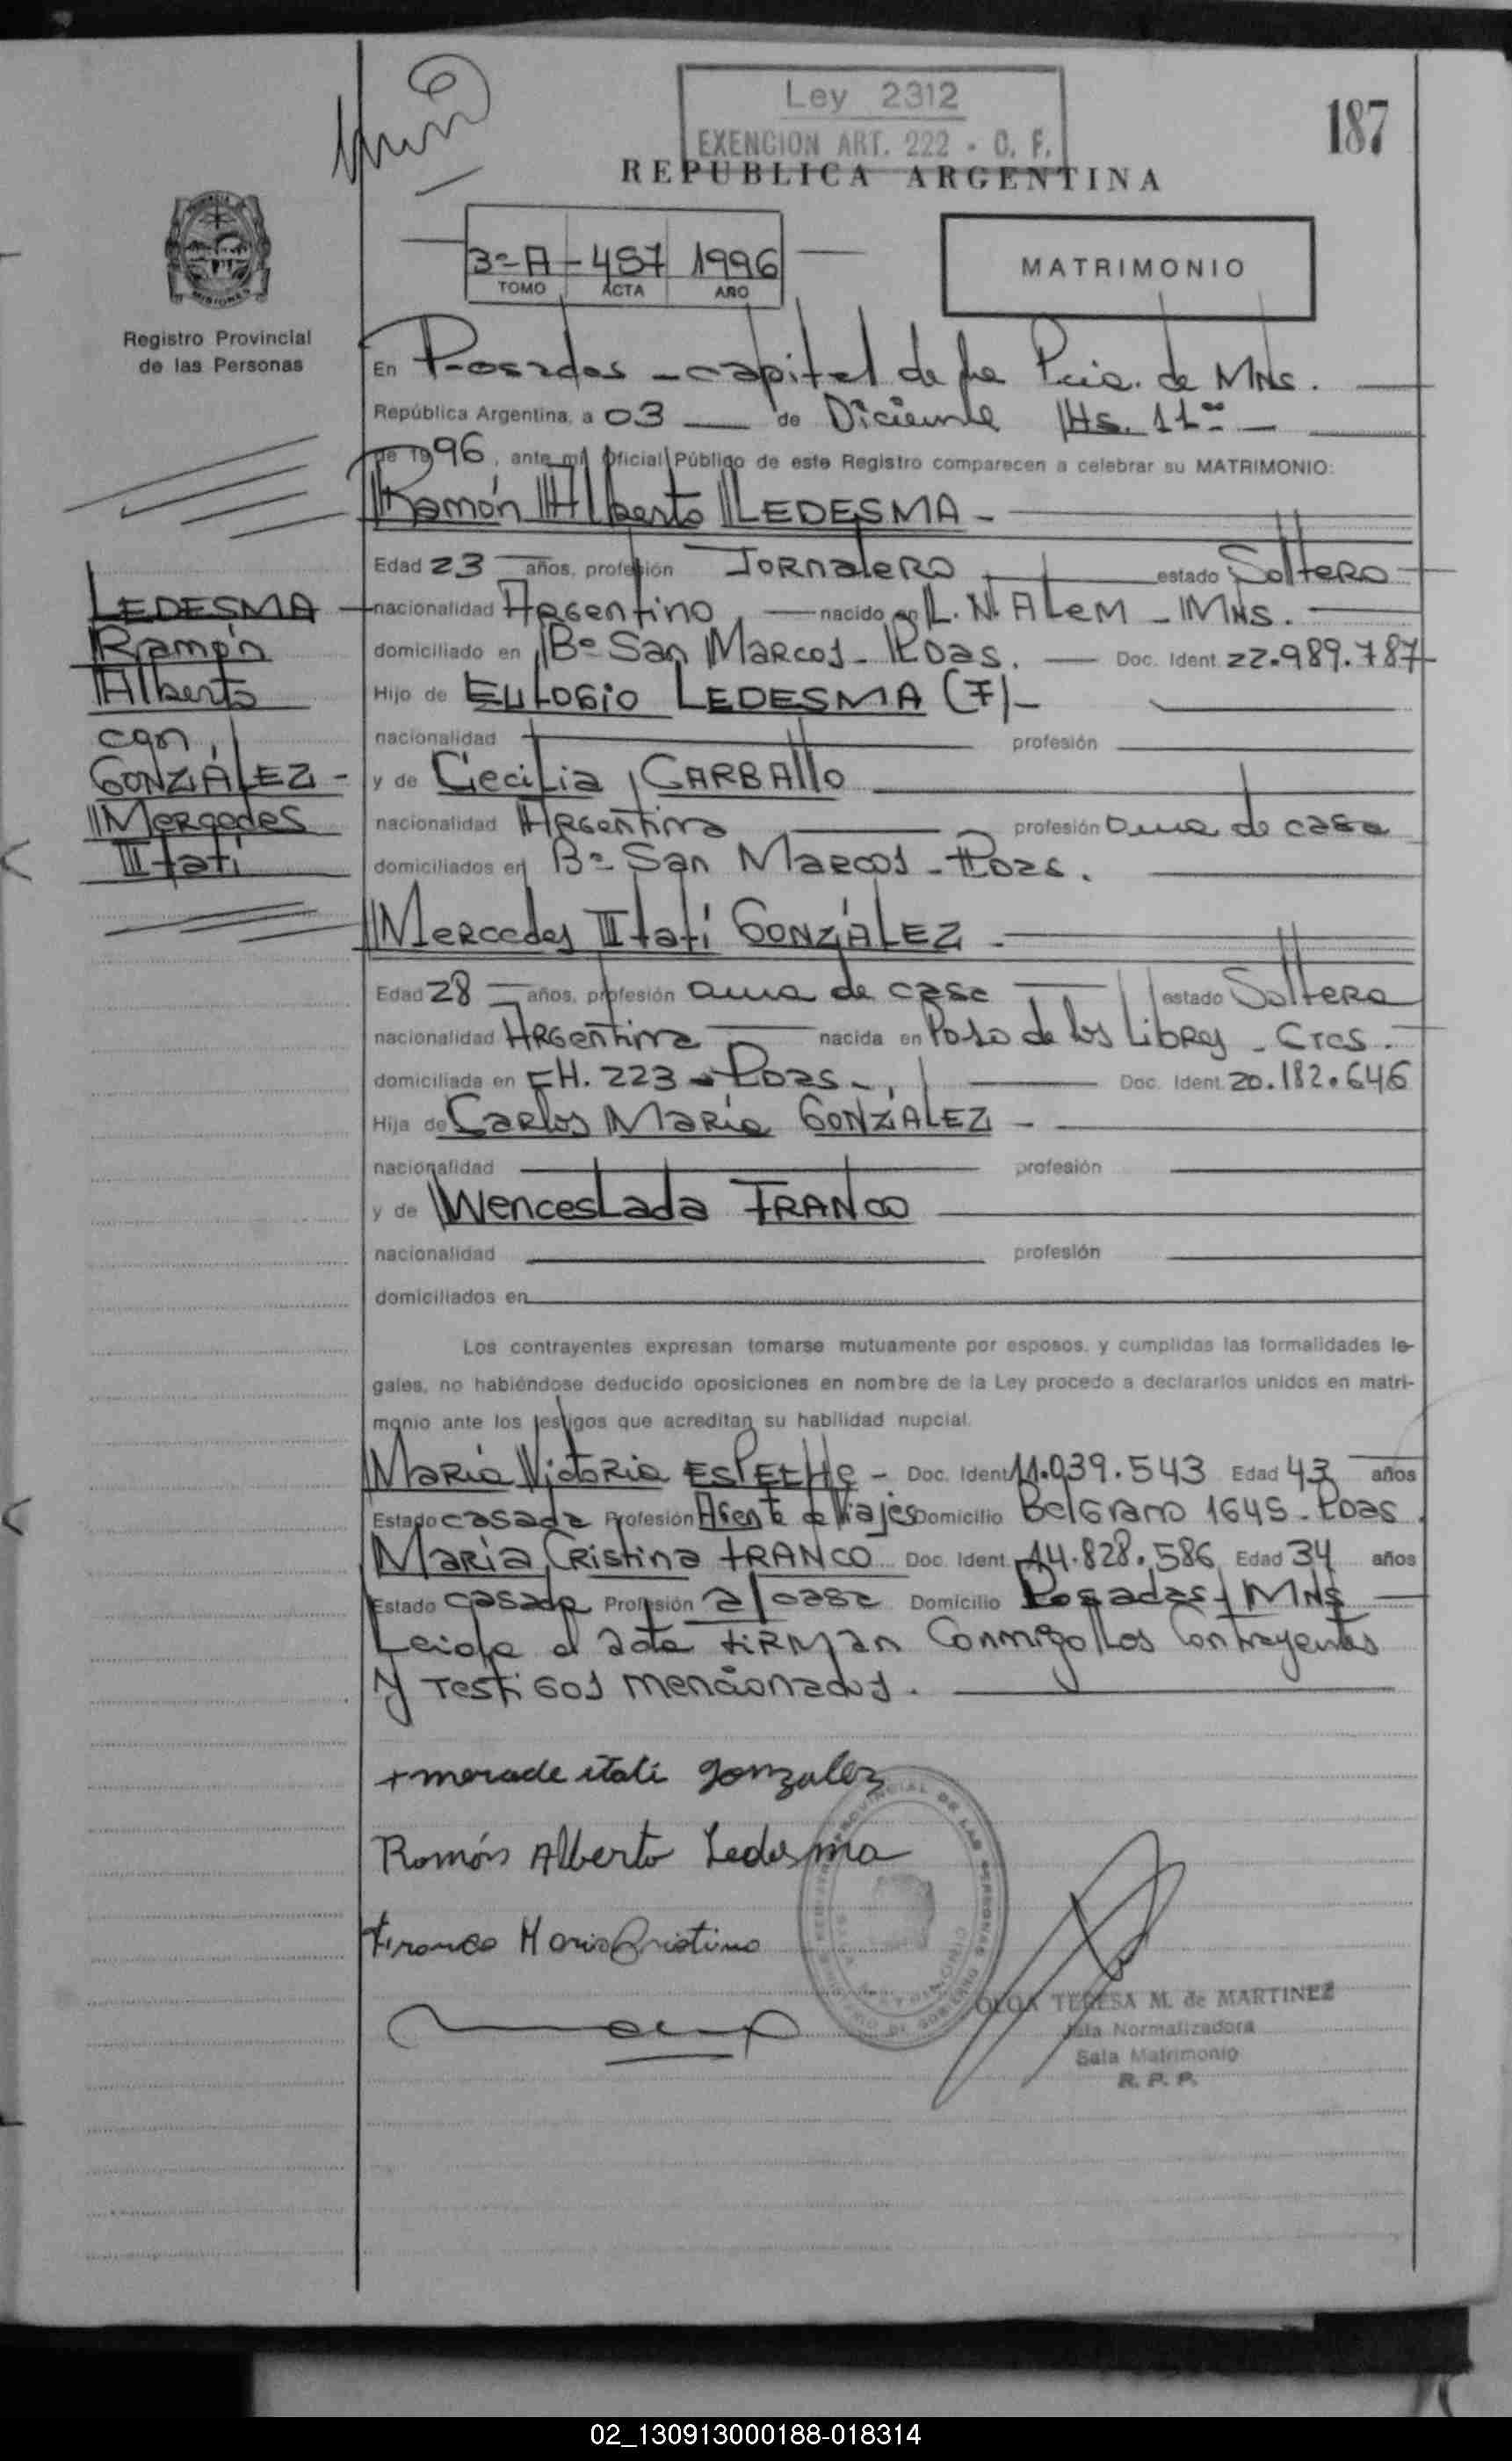 Ley 2312
EXENCION ART. 222 - C. F.
187
REPUBLICA ARGENTINA
3º-A - 457 1996
TOMO ACTA AÑO
MATRIMONIO
Registro Provincial
de las Personas
En Posadas - capital de la Pcia. de MNs.
República Argentina, a 03 de Diciembre Hs. 11
de 1996, ante mi Oficial Público de este Registro comparecen a celebrar su MATRIMONIO:
Ramón Alberto LEDESMA -
Edad 23 años, profesión Jornalero estado Soltero
nacionalidad Argentino nacido en L. N. Alem - MNs.
domiciliado en Bº San Marcos - Pdas. Doc. Ident. 22.989.787
Hijo de Eulogio LEDESMA (F) -
nacionalidad profesión
y de Cecilia CARBALLO
nacionalidad Argentina profesión ama de casa
domiciliados en Bº San Marcos - Pdas.
LEDESMA
Ramón
Alberto
con
GONZÁLEZ -
Mercedes
Itatí
Mercedes Itatí GONZÁLEZ -
Edad 28 años, profesión ama de casa estado Soltera
nacionalidad Argentina nacida en Paso de los Libres - Ctes.
domiciliada en CH. 223 - Pdas - Doc. Ident. 20.182.646
Hija de Carlos María GONZÁLEZ -
nacionalidad profesión
y de Wenceslada FRANCO
nacionalidad profesión
domiciliados en
Los contrayentes expresan tomarse mutuamente por esposos, y cumplidas las formalidades le-
gales, no habiéndose deducido oposiciones en nombre de la Ley procedo a declararlos unidos en matri-
monio ante los testigos que acreditan su habilidad nupcial.
María Victoria ESPECHE - Doc. Ident. 11.039.543 Edad 43 años
Estado casada Profesión Agente de Viajes Domicilio Belgrano 1645 - Pdas.
María Cristina FRANCO Doc. Ident. 14.828.586 Edad 34 años
Estado casada Profesión a/casa Domicilio Posadas - MNs
Leida el acta firman conmigo los contrayentes
y testigos mencionados.
+ mercade itati gonzalez
Ramón Alberto Ledesma
Franco Maria Cristina
OLGA TERESA M. de MARTINEZ
Jefa Normalizadora
Sala Matrimonio
R. P. P.
02_130913000188-018314